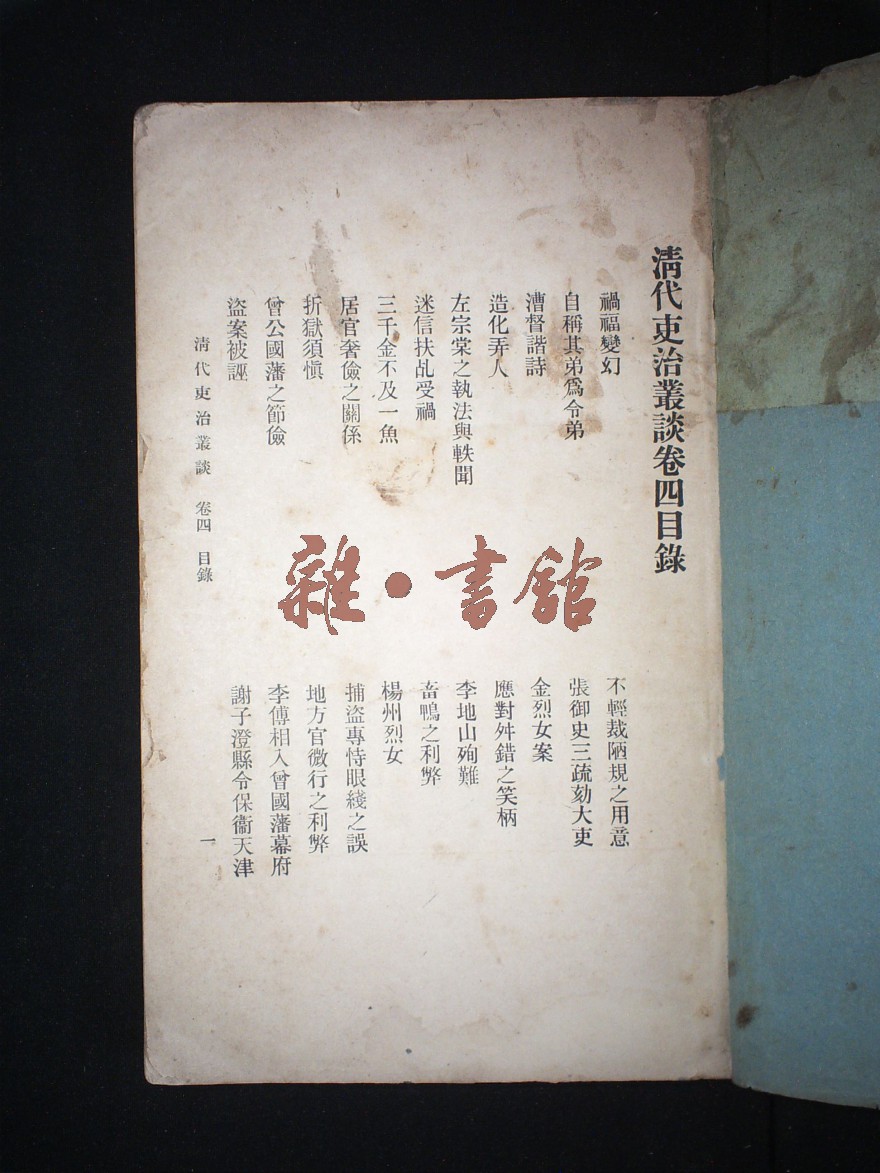 清代吏治叢談卷四目錄
禍福變幻
不輕裁陋規之用意
自稱其弟爲令弟
張御史三疏劾大吏
漕督諧詩
金烈女案
造化弄人
應對舛錯之笑柄
左宗棠之執法與軼聞
李地山殉難
迷信扶乩受禍
畜鴨之利弊
三千金不及一魚
楊州烈女
居官奢儉之關係
捕盜專恃眼綫之誤
折獄須愼
地方官微行之利弊
曾公國藩之節儉
李傅相入曾國藩幕府
盜案被誣
謝子澄縣令保衞天津
清代吏治叢談 卷四 目錄
一
雜•書館